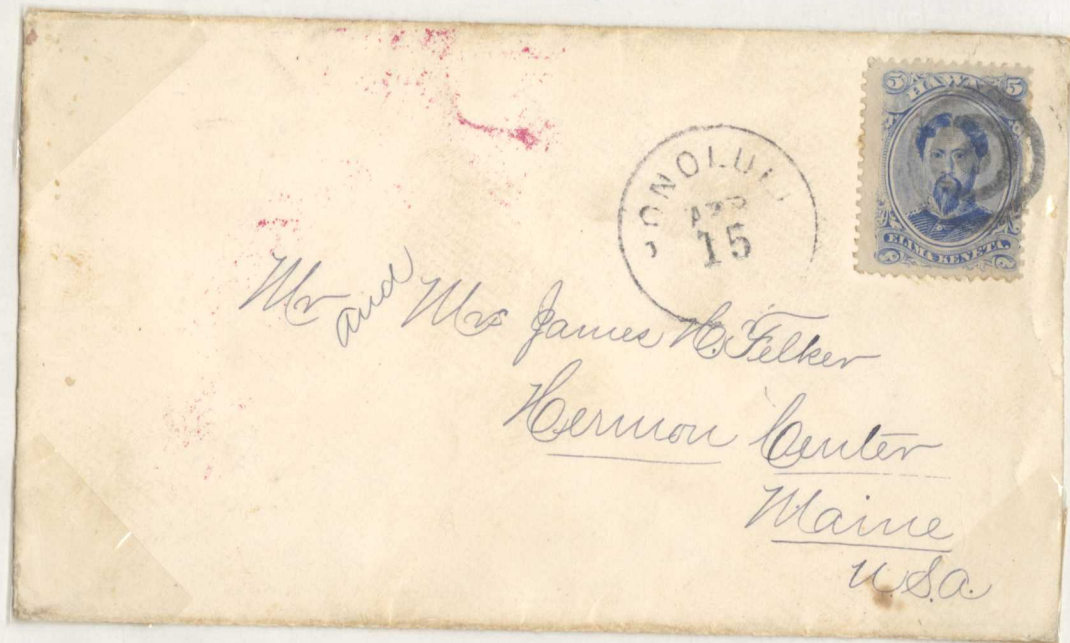 5 HAWAII 5
ELIMA KENETA
HONOLULU
APR
15
Mr and Mrs James H. Felker
Hermon Center
Maine
U.S.a.